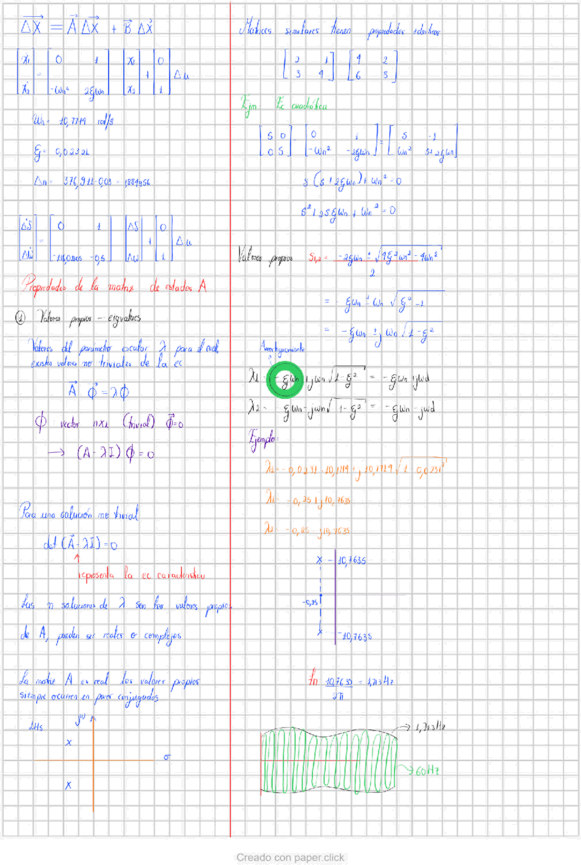 ΔẊ = A ΔX + B ΔX
ẋ1 = 0 1 x1 0
ẋ2 -ωn² 2ξωn x2 + 1 Δu
ωn = 10,7714 rad/s
ξ = 0,02326
0 1 Δδ 0
-0,5 Δω + 1 Δu
Propiedades de la matriz de estados A
① Valores propios - eigenvalues
Valores del parametro escalar λ para el cual
existen valores no triviales de la ec
A Φ = λΦ
Φ vector nx1 (trivial) Φ=0
→ (A-λI) Φ = 0
Para una solución no trivial
det (A-λI)=0
↑
representa la ec caracteristica
Las n soluciones de λ son los valores propios
de A, pueden ser reales o complejos
La matriz A es real los valores propios
siempre ocurren en pares conjugados
jω
x
σ
x
Matrices similares tienen propiedades identicas
2 1 4 2
3 4 6 8
Ejm Ec cuadrática
S 0 0 1 = S -1
0 S -ωn² -2ξωn ωn² S+2ξωn
s (s+2ξωn) + ωn² = 0
s² + 2sξωn + ωn² = 0
Valores propios S1,2 = -2ξωn ± √4ξ²ωn² - 4ωn²
2
= -ξωn ± ωn √ξ²-1
= -ξωn ± jωn √1-ξ²
Amortiguamiento
λ1 = -ξωn + jωn √1-ξ² = -ξωn + jωd
λ2 = -ξωn - jωn √1-ξ² = -ξωn - jωd
Ejemplo:
λ1 = -0,25 + j 10,7635
λ2 = -0,25 - j10,7635
x 10,7635
-0,25
x -10,7635
fn 10,7635 =
2π
60Hz
Creado con paper.click